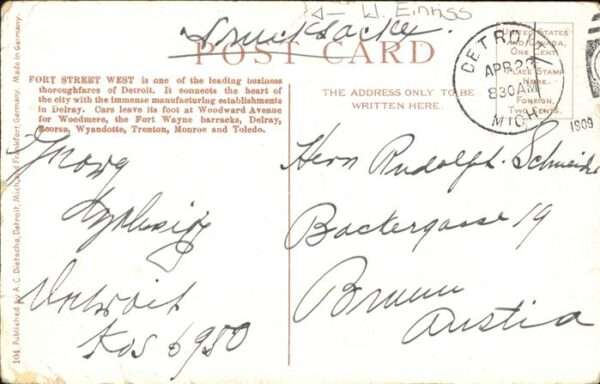 W. Einass
Drucksache
POST CARD
FORT STREET WEST is one of the leading business
thoroughfares of Detroit. It connects the heart of
the city with the immense manufacturing establishments
in Delray. Cars leave its foot at Woodward Avenue
for Woodmere, the Fort Wayne barracks, Delray,
Ecorse, Wyandotte, Trenton, Monroe and Toledo.
THE ADDRESS ONLY TO BE
WRITTEN HERE.
UNITED STATES
AND CANADA,
ONE CENT.
PLACE STAMP
HERE.
FOREIGN,
TWO CENTS.
DETROIT
APR 23
830 AM
MICH.
1909
Georg
Detroit
Kos 6980
Herrn Rudolph Schneider
Backergasse 19
Brunn
Austia
104 Published by A. C. Dietsche, Detroit, Mich., and Frankfort, Germany. Made in Germany.